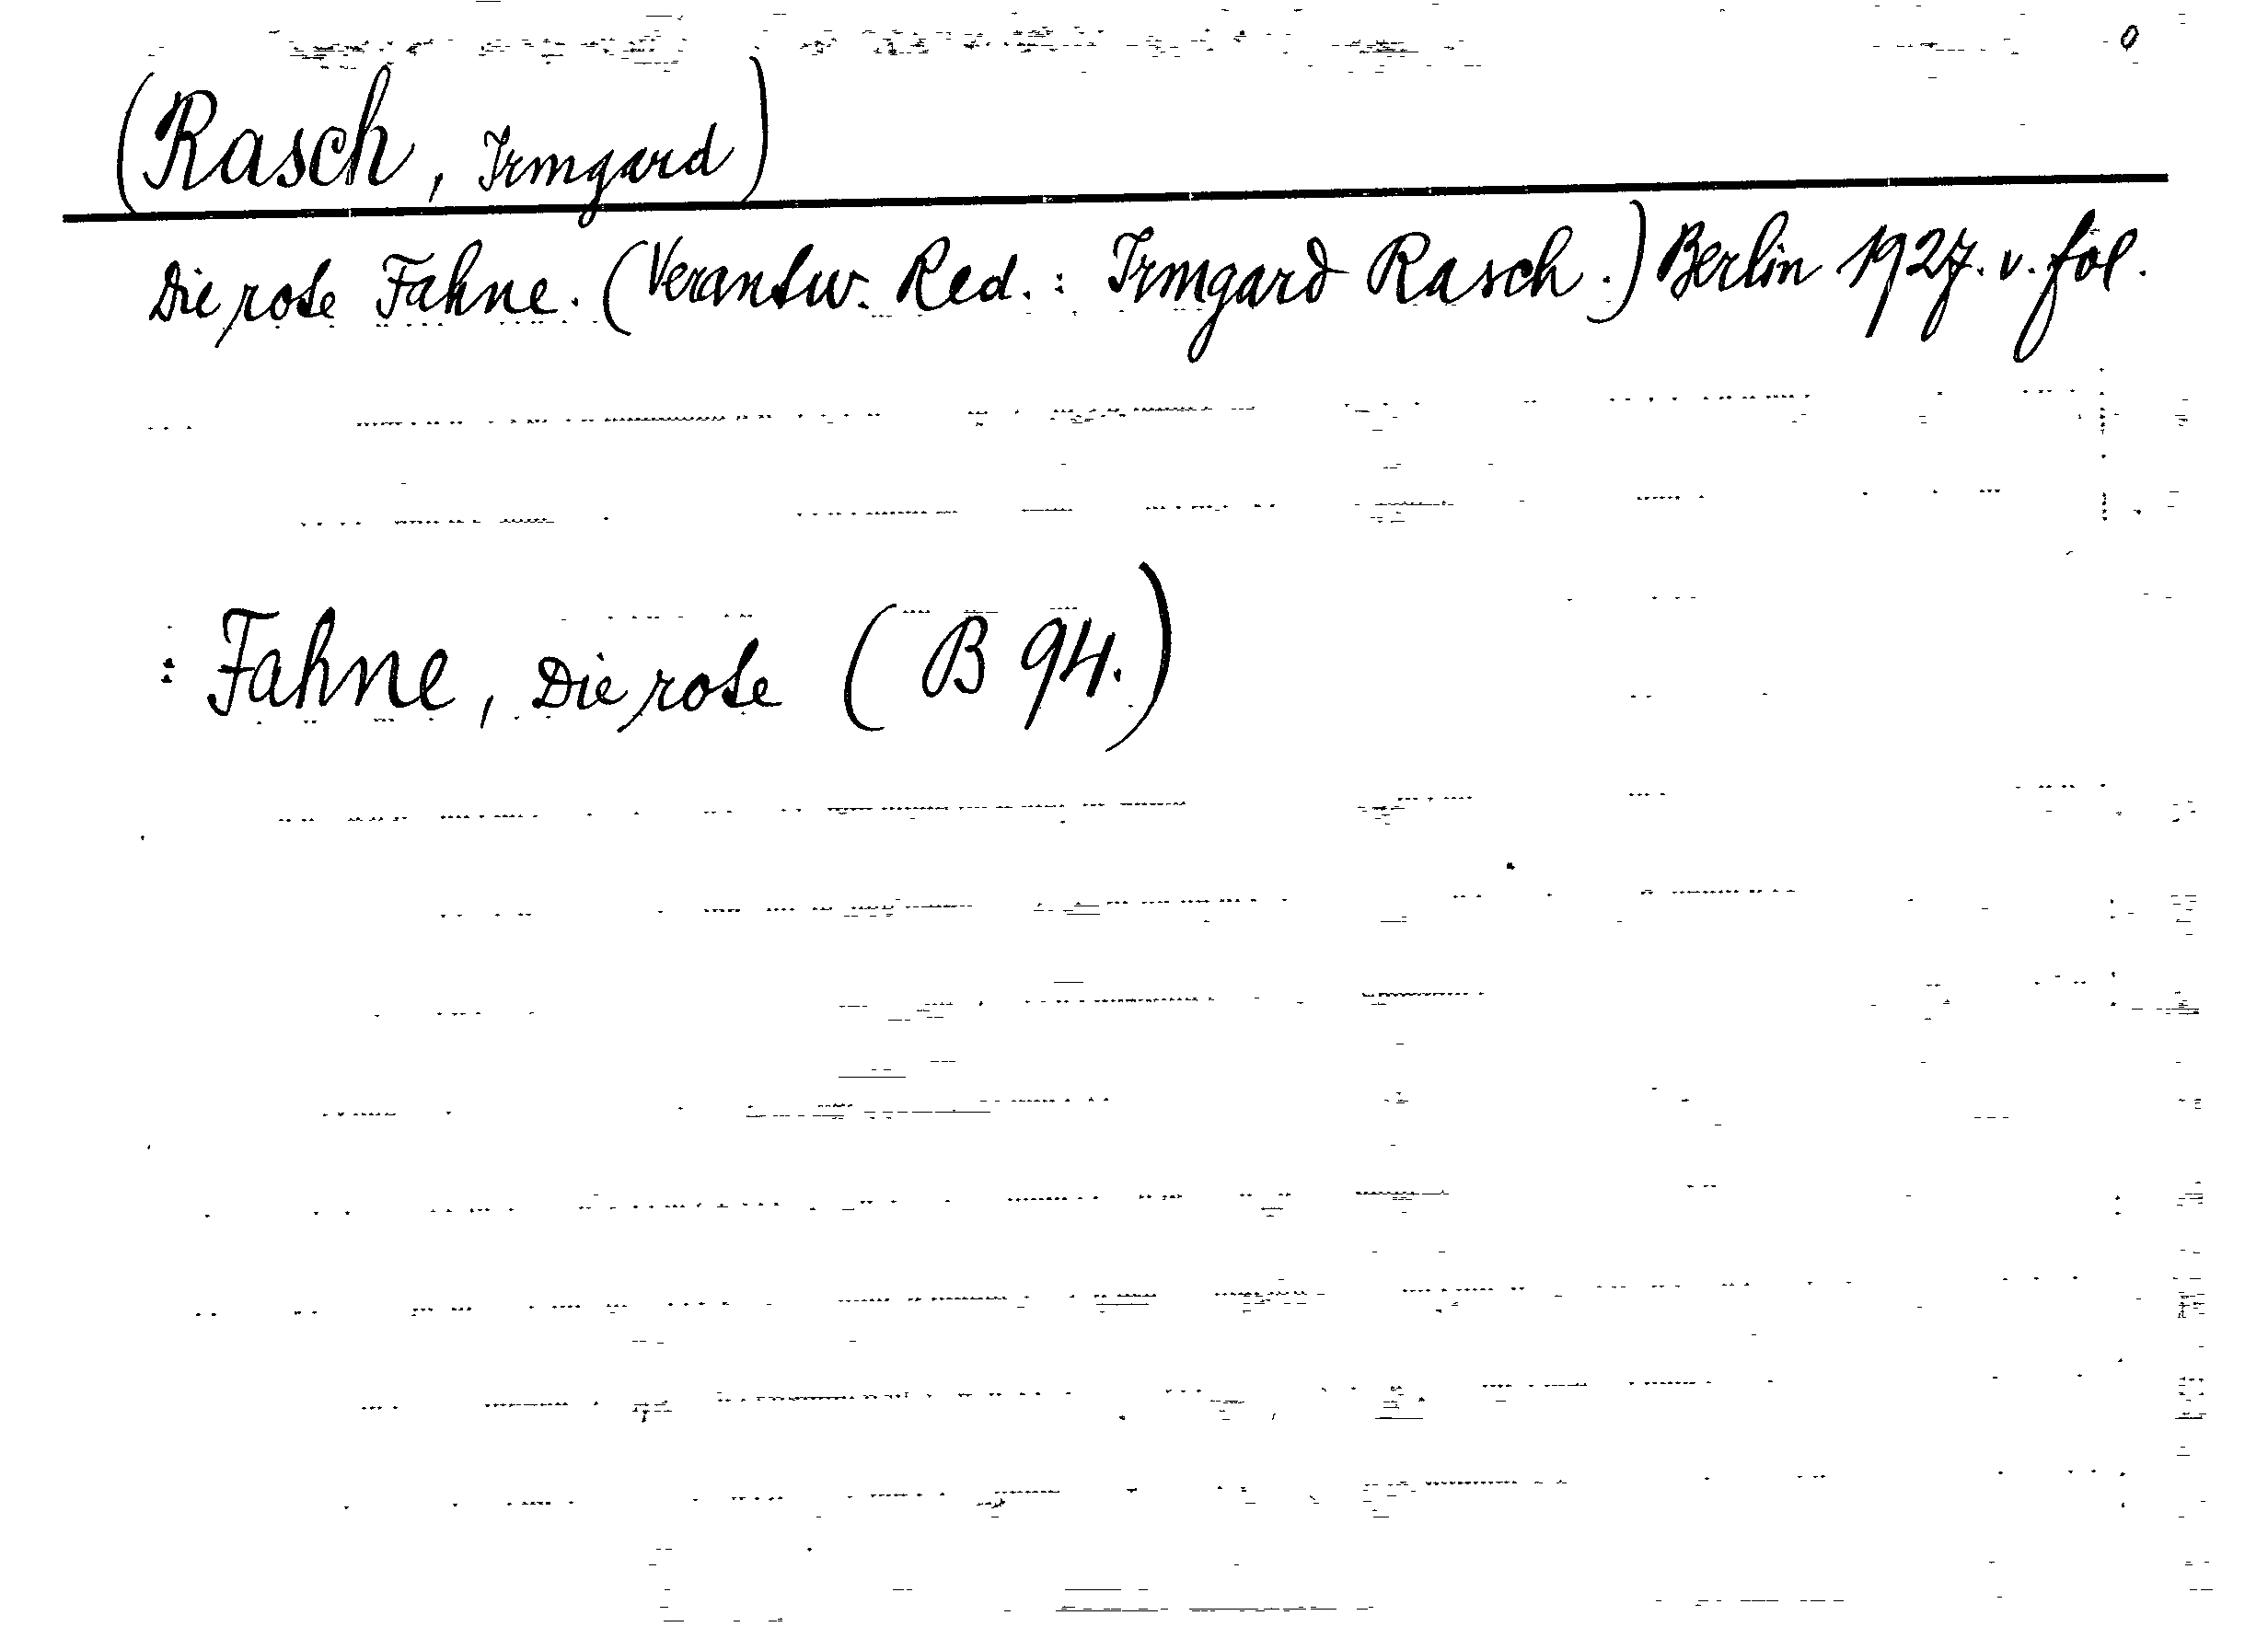 0
(Rasch, Irmgard)
Die rote Fahne. (Verantw. Red.: Irmgard Rasch.) Berlin 1927. v. fol.
: Fahne, Die rote (B 94.)